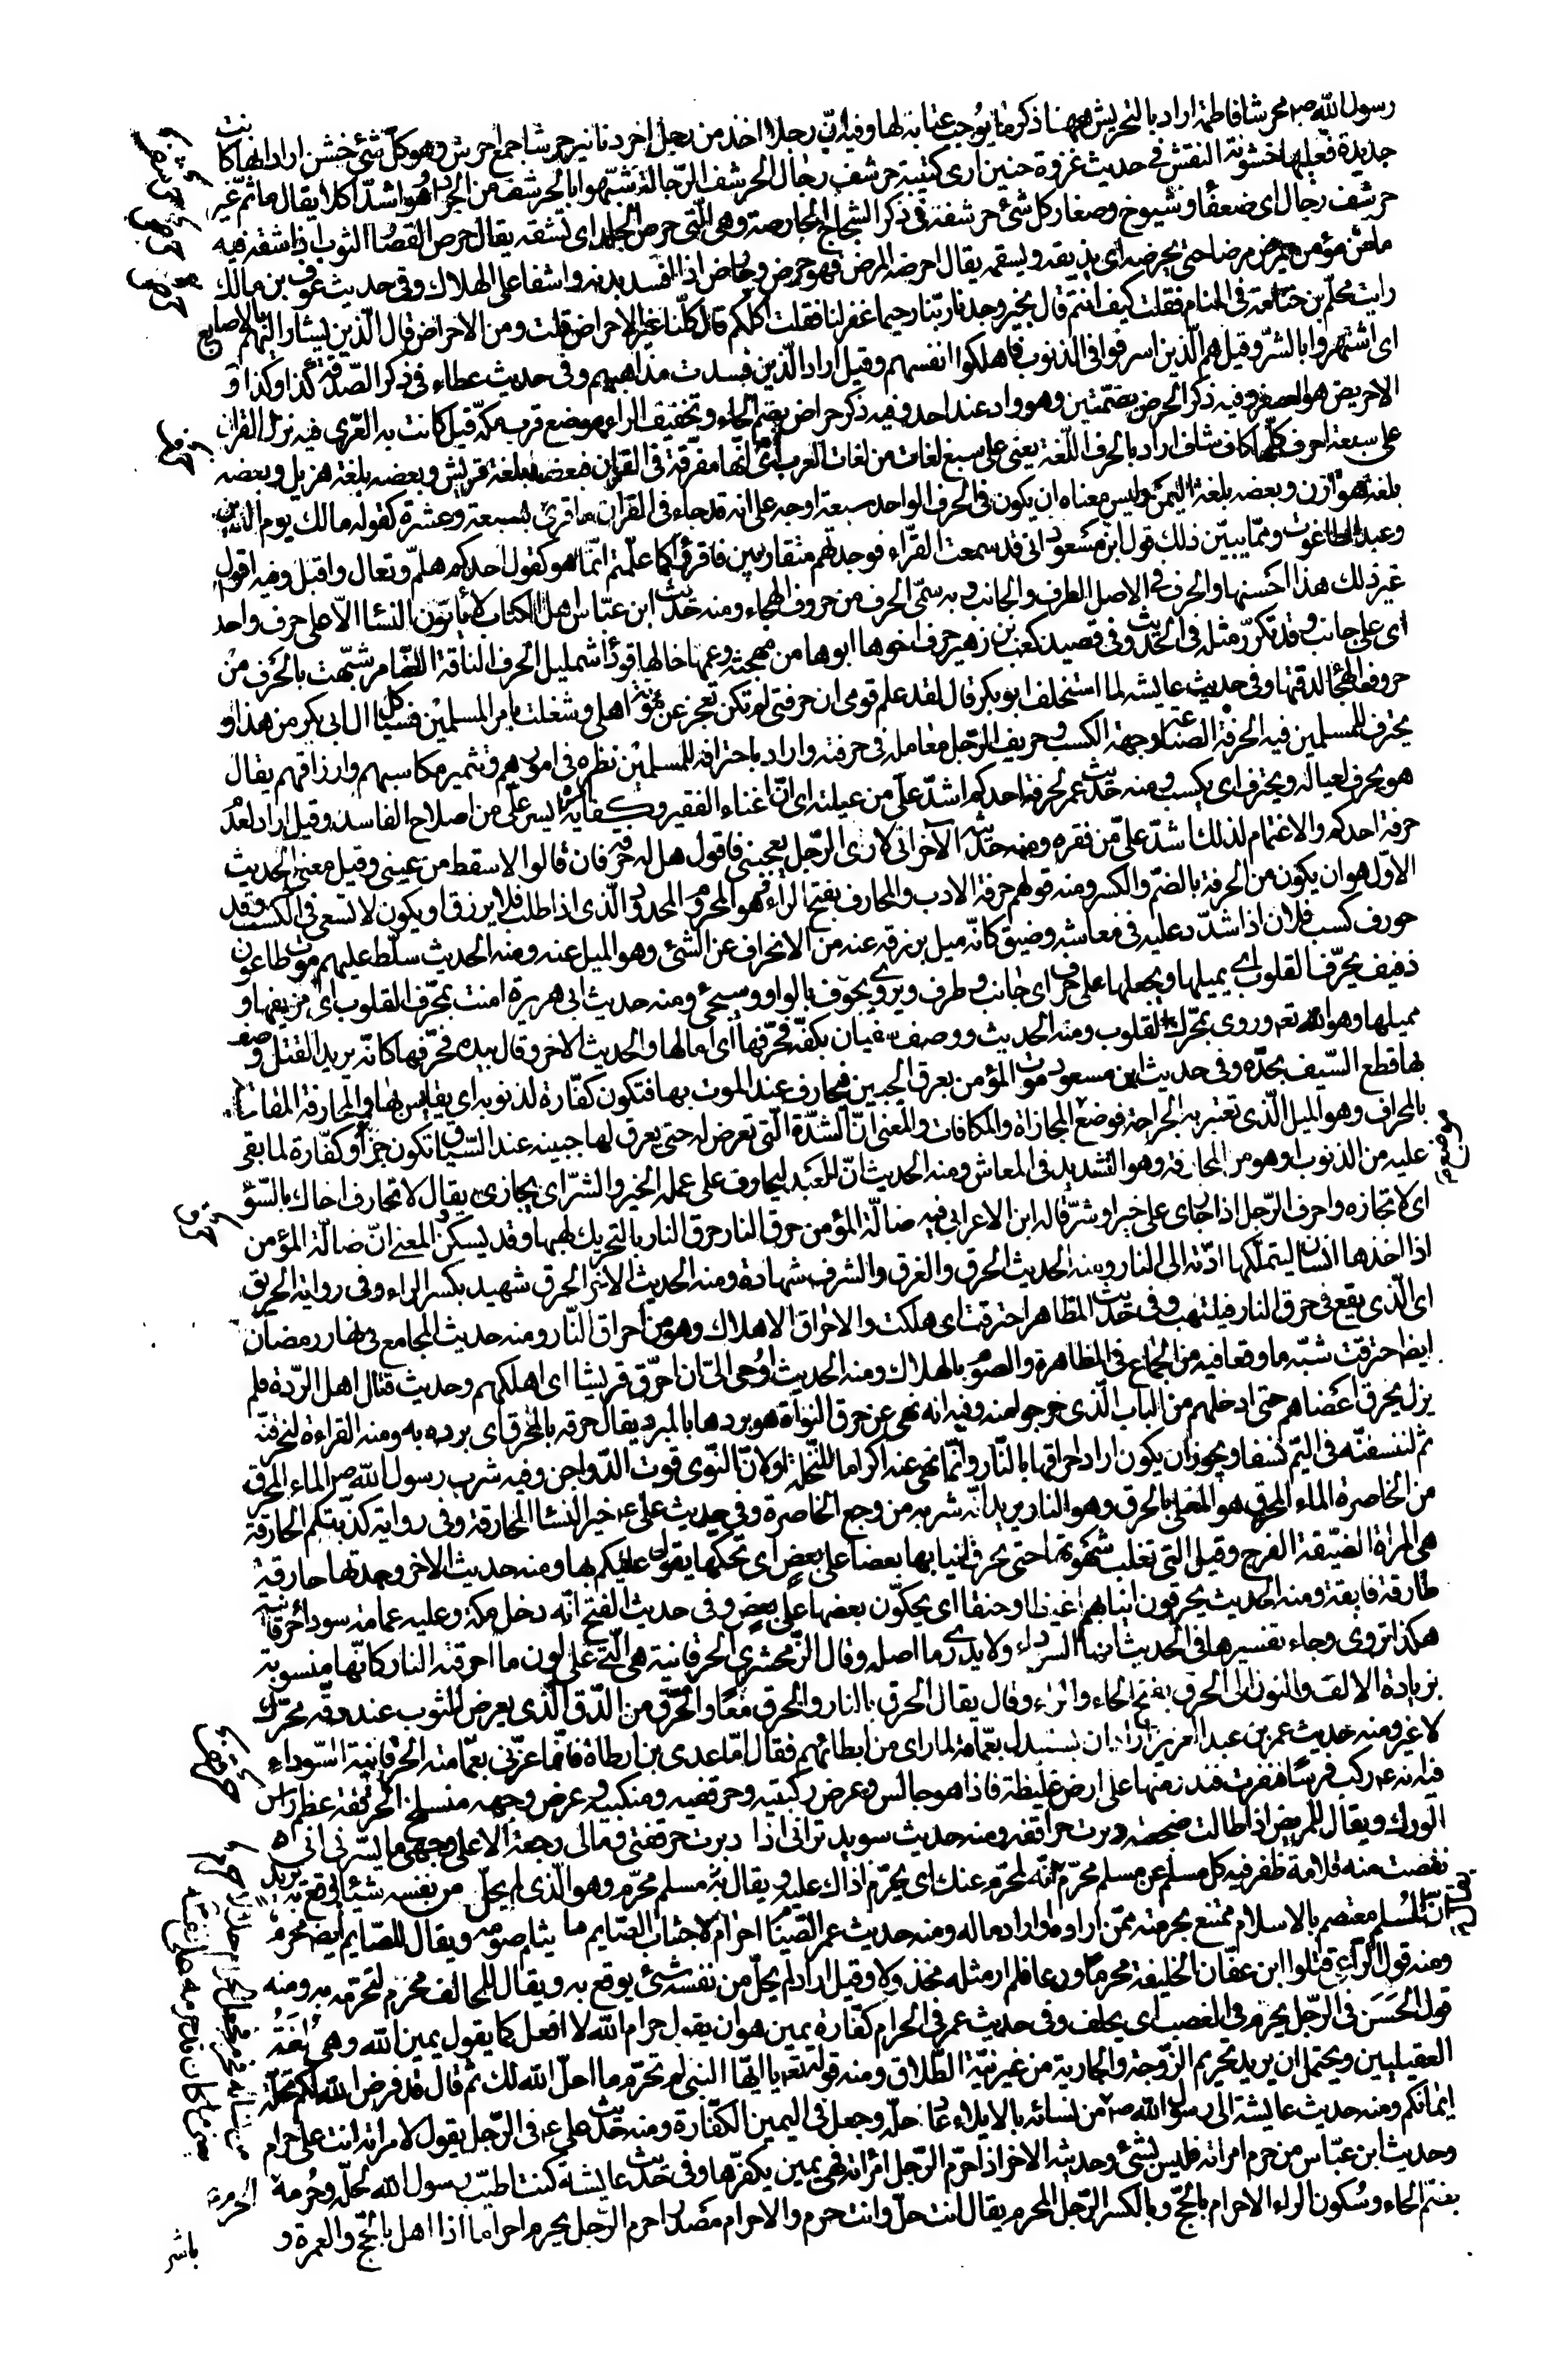 رسول الله صم محرشا فاطمة اراد بالتحريش ههنا ذكر ما يوجب عتابه لها وفيه انّ رجلا اخذ من رجل اخر دنانير حرشا جمع احرش وهو كلّ شئ خشن اراد انها كانت
جديدة فعليها خشونة النقش في حديث غزوة حنين ارى كتيبة حرشف رجال الحرشف الرّجالة شبّهوا بالحرشف من الجراد وهو اشدّ اكلا يقال ما ثمّ غير
حرشف رجال اى ضعفا وشيوخ وصغار كل شئ حرشفة في ذكر الشجاج الحارصة وهى الّتى تحرص الجلد اى تشقه يقال حرص القصّار الثوب اذا شقه فيه
ما من مؤمن يمرض مرضا حتى يحرضه اى يذيقه ويسقمه يقال احرضه المرض فهو حرض وحارض اذا افسد بدنه واشفا على الهلاك وفى حديث عوف بن مالك
رايت محلّم بن جثّامة في المنام فقلت كيف انتم قال بخير وجدنا ربّنا رحيما غفر لنا فقلت اكلكم قال كلّنا غير الاحراض قلت ومن الاحراض قال الّذين يشار اليهم بالاصابع
اى اشتهروا بالشرّ وقيل هم الّذين اسرفوا في الذنوب فاهلكوا انفسهم وقيل اراد الّذين فسدت مذاهبهم وفى حديث عطاء في ذكر الصّدقة كذا وكذا و
الاحريض هو العصفر وفيه ذكر الحرض بضمّتين وهو واد عند احد وفيه ذكر حراض بضم الحاء وتخفيف الراء موضع قرب مكة قيل كانت به العزّى فيه نزل القران
على سبعة احرف كلّها كاف شاف اراد بالحرف اللّغة يعنى على سبع لغات من لغات العرب اى انّها مفرّقة في القران فبعضه بلغة قريش وبعضه بلغة هزيل وبعضه
بلغة هوازن وبعضه بلغة اليمن وليس معناه ان يكون في الحرف الواحد سبعة اوجه على انه قد جاء في القران ما قرئ بسبعة وعشرة كقوله مالك يوم الدّين
وعبد الطاغوت وممّا يبيّن ذلك قول ابن مسعود انى قد سمعت القرّاء فوجدتهم متقاربين فاقرؤا كما علّمتم انّما هو كقول احدكم هلمّ وتعال واقبل وفيه اقول
غير ذلك هذا احسنها والحرف في الاصل الطرف والجانب وبه سمّى الحرف من حروف الهجاء ومنه حديث ابن عبّاس اهل الكتاب لا يأتون النسا الاّ على حرف واحد
اى على جانب وقد تكرّر مثله في الحديث وفي قصيد كعب بن زهير حرف اخوها ابوها من مهجنة وعمّها خالها قوداء شمليل الحرف الناقة الضامر شبّهت بالحرف من
حروف الهجا لدقتها وفى حديث عايشه لما استخلف ابو بكر قال لقد علم قومى ان حرفتى لم تكن تعجز عن مؤنة اهلى وشغلت بامر المسلمين فسياكل ال ابى بكر من هذا و
يحترف للمسلمين فيه الحرفة الصناعة وجهة الكسب وحريف الرّجل معامله في حرفته واراد باحترافه للمسلمين نظره في امورهم وتثمير مكاسبهم وارزاقهم يقال
هو يحرف لعياله ويحترف اى يكسب ومنه حديث عمر لحرفة احدكم اشدّ علىّ من عيلته اى انّ اغناء الفقير وكفايته ايسر علىّ من اصلاح الفاسد وقيل اراد لعدم
حرفة احدكم والاغتمام لذلك اشدّ علىّ من فقره ومنه حديثه الآخر انى لارى الرّجل يعجبنى فاقول هل له حرفة فان قالوا لا سقط من عينى وقيل معنى الحديث
الاوّل هو ان يكون من الحرفة بالضمّ والكسر ومنه قولهم حرفة الادب والمحارف بفتح الراء هو المحروم المحدود الّذى اذا طلب فلا يرزق او يكون لا تسعى في الكسب وقد
حورف كسب فلان اذا شدّد عليه في معاشه وضيق كانّه ميل برزقه عنه من الانحراف عن الشئ وهو الميل عنه ومنه الحديث سلّط عليهم موت طاعون
ذفيف يحرّف القلوب اى يميلها ويجعلها على حرف اى جانب وطرف ويروى يحوّف بالواو وسيجئ ومنه حديث ابى هريرة امنت بمحرّف القلوب اى مزيغها و
مميلها وهو الله تعم وروى بمحرّك القلوب ومنه الحديث ووصف سفيان بكفّه فحرّفها اى امالها والحديث الاخر وقال بيده فحرّفها كانّه يريد القتل وصف
بها قطع السّيف بحدّه وفى حديث ابن مسعود موت المؤمن بعرق الجبين فيحارف عند الموت بها فتكون كفّارة لذنوبه اى يقايس بها والمحارفة المقايسة
بالمحراف وهو الميل الّذى تعتبر به الجراحة فوضع المجازاة والمكافات والمعنى انّ الشدّة الّتى تعرض له حتى يعرق لها جبينه عند السّياق تكون جزاء وكفّارة لما بقى
عليه من الذنوب او هو من المحارفة وهو التشديد في المعاش ومنه الحديث انّ العبد ليحارف على عمله الخير والشرّ اى يجازى يقال لا تحارف اخاك بالسّوء
اى لا تجازه واحرف الرّجل اذا جازى على خير او شرّ قاله ابن الاعرابى فيه ضالّة المؤمن حرق النار حرق النار بالتحريك لهبها وقد يسكن المعنى انّ ضالّة المؤمن
اذا اخذها انسان ليتملّكها ادّته الى النار ومنه الحديث الحرق والغرق والشرق شهادة ومنه الحديث الاخر الحرق شهيد بكسر الراء وفى رواية الحريق
اى الّذى يقع في حرق النار فيلتهب وفى حديث المظاهر احترقت اى هلكت والاحراق الاهلاك وهو من احراق النّار ومنه حديث المجامع في نهار رمضان
ايضا احترقت شبّه ما وقعا فيه من الجماع في المظاهرة والصّوم بالهلاك ومنه الحديث اوحى الىّ ان احرّق قريشا اى اهلكهم وحديث قتال اهل الرّدة فلم
يزل يحرق اعضاهم حتى ادخلهم من الباب الّذى خرجوا منه وفيه انه نهى عن حرق النواة هو بردها بالمبرد يقال حرقه بالمحرق اى برده به ومنه القراءة لنحرقنّه
ثم لننسفنّه في اليمّ نسفا ويجوز ان يكون اراد احراقها بالنّار وانّما نهى عنه اكراما للنّخلة او لانّ النّوى قوت الدّواجن وفيه شرب رسول الله صم الماء المحرق
من الخاصرة الماء المحرق هو المغلى بالحرق وهو النار يريد انّه شربه من وجع الخاصرة وفى حديث على عم خير النسا الحارقة وفى رواية كذبتكم الحارقة
هى المراة الضيّقة الفرج وقيل التى تغلب شهوتها حتى تحرق انيابها بعضا على بعض اى تحكها يقول عليكم بها ومنه حديث الاخر وجدتها حارقة
طارقة فايقة ومنه الحديث يحرقون انيابهم غيظا وحنقا اى يحكّون بعضها على بعض وفى حديث الفتح انّه دخل مكة وعليه عمامة سودا حرقانية
هكذا تروى وجاء تفسيرها في الحديث انها السوداء ولا يدرى ما اصله وقال الزّمخشرى الحرقانية هى الّتى على لون ما احرقته النار كانّها منسوبة
بزيادة الالف والنون الى الحرق بفتح الحاء والراء وقال يقال الحرق بالنار والحرق معا والحرق من الدّق الّذى يعرض للثوب عند دقّه محرّك
لا غير ومنه حديث عمر بن عبد العزيز اراد ان يستبدل بعمّاله لما راى من ابطائهم فقال امّا عدى بن ارطاة فانّما غرّنى بعمّامته الحرقانية السّوداء
فيه انه عم ركب فرسا فنفرت فندر منها على ارض غليظة فاذا هو جالس وعرض ركبتيه وحرقفتيه ومنكبيه وعرض وجهه منسلح الحرقفة عظم راس
الورك ويقال للمريض اذا طالت ضجعته دبرت حراقفه ومنه حديث سويد ترانى اذا دبرت حرقفتى ومالى رجعة الا على وجهى ما يسّرنى انى
نقصت منه قلامة ظفر فيه كل مسلم عن مسلم محرّم انّه لمحرّم عنك اى يحرّم اذاك عليه ويقال مسلم محرّم وهو الّذى لم يحلّ من نفسه شيئا يوقع به يريد
انّ المسلم معتصم بالاسلام ممتنع بحرمته ممّن اراده او اراد ماله ومنه حديث عمر الصّيام احرام لاجتناب الصّايم ما يثلم صومه ويقال للصّايم ايضا محرم
ومنه قول الرّاعى قتلوا ابن عفّان الخليفة محرما ودعا فلم ار مثله مخذولا وقيل اراد لم يحلّ من نفسه شئ يوقع به ويقال للحالف محرم لتحرّمه به ومنه
قول الحسن في الرّجل يحرم في الغضب اى يحلف وفى حديث عمر في الحرام كفّارة يمين هو ان يقول حرام الله لا افعل كما يقول يمين الله وهى لغة
العقيليين ويحتمل ان يريد تحريم الزّوجة والجارية من غير نيّة الطّلاق ومنه قوله تعم يا ايّها النبى لم تحرّم ما احلّ الله لك ثم قال قد فرض الله لكم تحلّة
ايمانكم ومنه حديث عايشة الى رسول الله صم من نسائه بالايلاء حلّه وجعل في اليمين الكفّارة ومنه حديث على عم في الرّجل يقول لامراته انت علىّ حرام
وحديث ابن عبّاس من حرم امراته فليس بشئ وحديثه الاخر اذا حرّم الرّجل امراته فهى يمين يكفّرها وفى حديث عايشة كنت اطيّب رسول الله لحلّه وحرمه الحرم
بضمّ الحاء وسكون الراء الاحرام بالحجّ وبالكسر الرّجل المحرم يقال انت حلّ وانت حرم والاحرام مصدر احرم الرّجل يحرم احراما اذا اهل بالحجّ والعمرة و
باشر